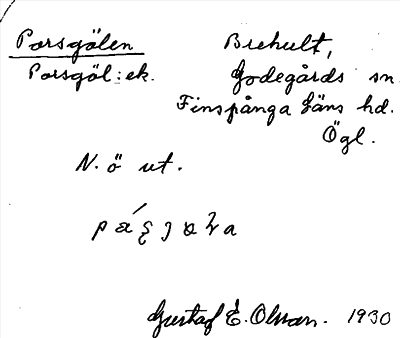 Porsgölen Brehult,
Porsgöl: ek. Godegårds sn.
Finspånga läns hd.
Ögl.
N. ö ut.
Gustaf E. Olsson. 1930